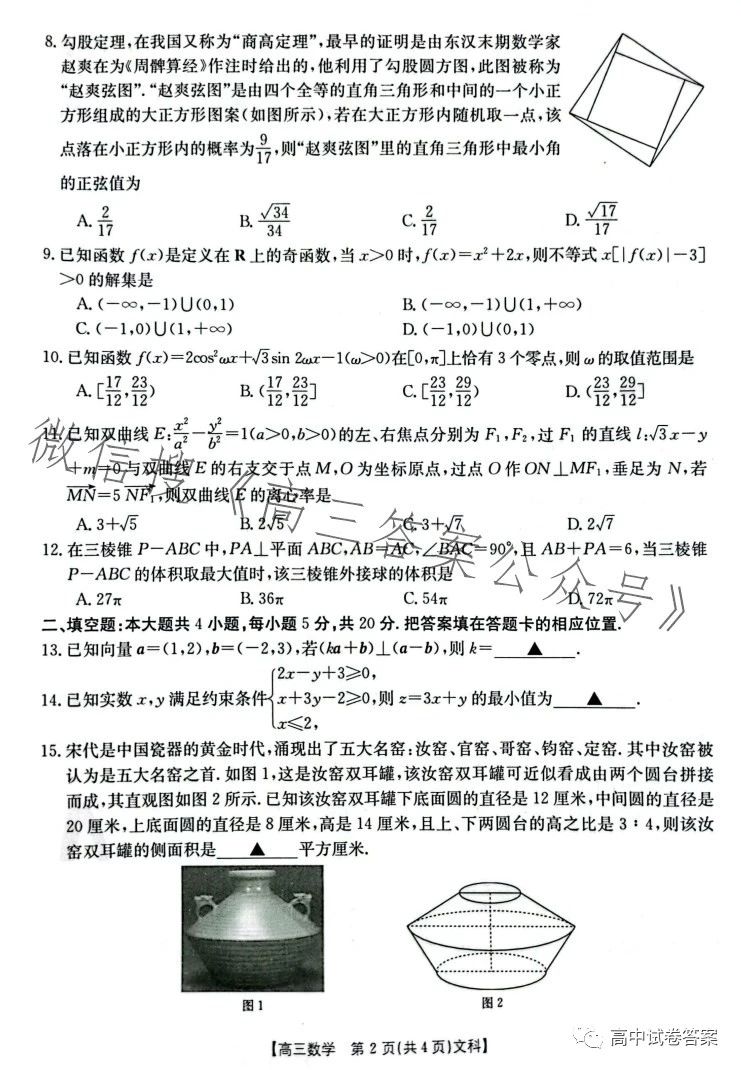 8. 勾股定理,在我国又称为“商高定理”,最早的证明是由东汉末期数学家
赵爽在为《周髀算经》作注时给出的,他利用了勾股圆方图,此图被称为
“赵爽弦图”.“赵爽弦图”是由四个全等的直角三角形和中间的一个小正
方形组成的大正方形图案(如图所示),若在大正方形内随机取一点,该
点落在小正方形内的概率为9/17,则“赵爽弦图”里的直角三角形中最小角
的正弦值为
A. 2/17 B. √34/34 C. 2/17 D. √17/17
9. 已知函数 f(x)是定义在 R 上的奇函数,当 x>0 时,f(x)=x²+2x,则不等式 x[|f(x)|-3]
>0 的解集是
A. (-∞,-1)∪(0,1) B. (-∞,-1)∪(1,+∞)
C. (-1,0)∪(1,+∞) D. (-1,0)∪(0,1)
10. 已知函数 f(x)=2cos²ωx+√3sin 2ωx-1(ω>0)在[0,π]上恰有 3 个零点,则 ω 的取值范围是
A. [17/12,23/12) B. (17/12,23/12] C. [23/12,29/12) D. (23/12,29/12]
11. 已知双曲线 E:x²/a²-y²/b²=1(a>0,b>0)的左、右焦点分别为 F₁,F₂,过 F₁ 的直线 l:√3x-y
+m=0 与双曲线 E 的右支交于点 M,O 为坐标原点,过点 O 作 ON⊥MF₁,垂足为 N,若
MN=5 NF₁,则双曲线 E 的离心率是
A. 3+√5 B. 2√5 C. 3+√7 D. 2√7
12. 在三棱锥 P-ABC 中,PA⊥平面 ABC,AB=AC,∠BAC=90°,且 AB+PA=6,当三棱锥
P-ABC 的体积取最大值时,该三棱锥外接球的体积是
A. 27π B. 36π C. 54π D. 72π
二、填空题:本大题共 4 小题,每小题 5 分,共 20 分. 把答案填在答题卡的相应位置.
13. 已知向量 a=(1,2),b=(-2,3),若(ka+b)⊥(a-b),则 k= ▲ .
14. 已知实数 x,y 满足约束条件{2x-y+3≥0, x+3y-2≥0, x≤2, 则 z=3x+y 的最小值为 ▲ .
15. 宋代是中国瓷器的黄金时代,涌现出了五大名窑:汝窑、官窑、哥窑、钧窑、定窑. 其中汝窑被
认为是五大名窑之首. 如图 1,这是汝窑双耳罐,该汝窑双耳罐可近似看成由两个圆台拼接
而成,其直观图如图 2 所示. 已知该汝窑双耳罐下底面圆的直径是 12 厘米,中间圆的直径是
20 厘米,上底面圆的直径是 8 厘米,高是 14 厘米,且上、下两圆台的高之比是 3∶4,则该汝
窑双耳罐的侧面积是 ▲ 平方厘米.
图 1 图 2
【高三数学 第 2 页(共 4 页)文科】
高中试卷答案
微信搜《高三答案公众号》